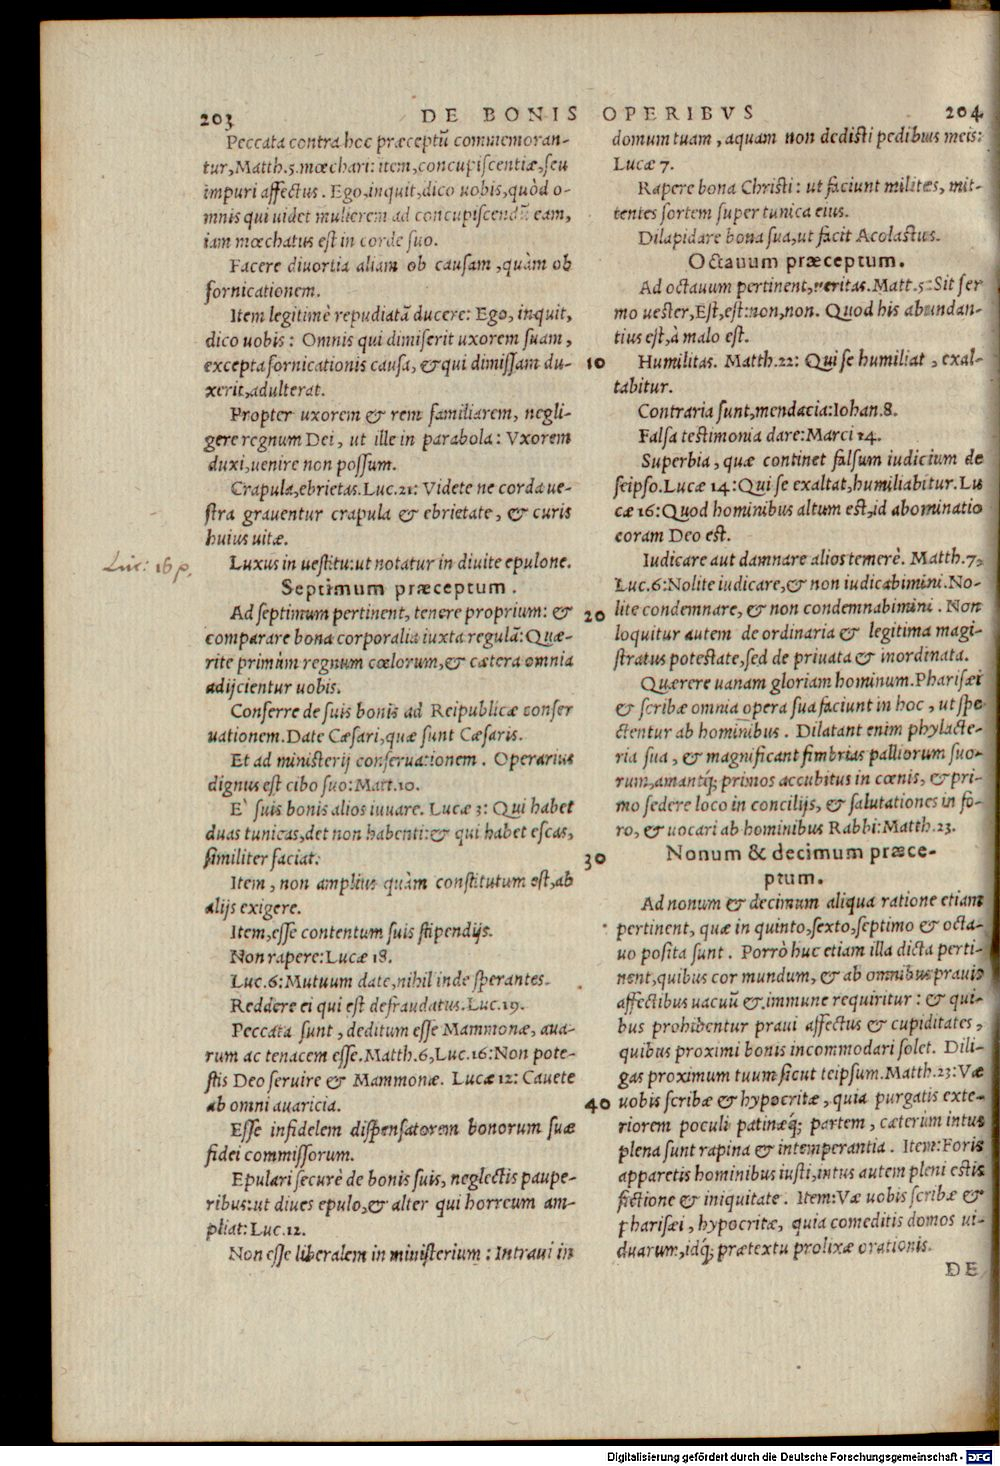 203 DE BONIS OPERIBVS 204
Peccata contra hoc præceptũ commemoran-
tur, Matth.5. mœchari: item, concupiscentiæ, seu
impuri affectus. Ego, inquit, dico uobis, quòd o-
mnis qui uidet mulierem ad concupiscendũ eam,
iam mœchatus est in corde suo.
Facere diuortia aliam ob causam, quàm ob
fornicationem.
Item legitimè repudiatã ducere: Ego, inquit,
dico uobis: Omnis qui dimiserit uxorem suam,
excepta fornicationis causa, & qui dimissam du-
xerit, adulterat.
Propter uxorem & rem familiarem, negli-
gere regnum Dei, ut ille in parabola: Vxorem
duxi, uenire non possum.
Crapula, ebrietas. Luc.21: Videte ne corda ue-
stra grauentur crapula & ebrietate, & curis
huius uitæ.
Luc: 16 p.
Luxus in uestitu: ut notatur in diuite epulone.
Septimum præceptum.
Ad septimum pertinent, tenere proprium: &
comparare bona corporalia iuxta regulã: Quæ-
rite primùm regnum cœlorum, & cætera omnia
adijcientur uobis.
Conferre de suis bonis ad Reipublicæ conser
uationem. Date Cæsari, quæ sunt Cæsaris.
Et ad ministerij conseruationem. Operarius
dignus est cibo suo: Matt.10.
E` suis bonis alios iuuare. Lucæ 3: Qui habet
duas tunicas, det non habenti: & qui habet escas,
similiter faciat.
Item, non amplius quàm constitutum est, ab
alijs exigere.
Item, esse contentum suis stipendijs.
Non rapere: Lucæ 18.
Luc.6: Mutuum date, nihil inde sperantes.
Reddere ei qui est defraudatus. Luc.19.
Peccata sunt, deditum esse Mammonæ, aua-
rum ac tenacem esse. Matth.6, Luc.16: Non pote-
stis Deo seruire & Mammonæ. Lucæ 12: Cauete
ab omni auaricia.
Esse infidelem dispensatorem bonorum suæ
fidei commissorum.
Epulari securè de bonis suis, neglectis paupe-
ribus: ut diues epulo, & alter qui horreum am-
pliat: Luc.12.
Non esse liberalem in ministerium: Intraui in
domum tuam, aquam non dedisti pedibus meis:
Lucæ 7.
Rapere bona Christi: ut faciunt milites, mit-
tentes sortem super tunica eius.
Dilapidare bona sua, ut facit Acolastus.
Octauum præceptum.
Ad octauum pertinent, ueritas. Matt.5: Sit ser
mo uester, Est, est: non, non. Quod his abundan-
tius est, à malo est.
10 Humilitas. Matth.22: Qui se humiliat, exal-
tabitur.
Contraria sunt, mendacia: Iohan.8.
Falsa testimonia dare: Marci 14.
Superbia, quæ continet falsum iudicium de
seipso. Lucæ 14: Qui se exaltat, humiliabitur. Lu
cæ 16: Quod hominibus altum est, id abominatio
coram Deo est.
Iudicare aut damnare alios temerè. Matth.7,
Luc.6: Nolite iudicare, & non iudicabimini. No-
20 lite condemnare, & non condemnabimini. Non
loquitur autem de ordinaria & legitima magi-
stratus potestate, sed de priuata & inordinata.
Quærere uanam gloriam hominum. Pharisæi
& scribæ omnia opera sua faciunt in hoc, ut spe
ctentur ab hominibus. Dilatant enim phylacte-
ria sua, & magnificant fimbrias palliorum suo-
rum, amantq́; primos accubitus in cœnis, & pri-
mo sedere loco in concilijs, & salutationes in fo-
ro, & uocari ab hominibus Rabbi: Matth.23.
30 Nonum & decimum præce-
ptum.
Ad nonum & decimum aliqua ratione etiam
pertinent, quæ in quinto, sexto, septimo & octa-
uo posita sunt. Porrò huc etiam illa dicta perti-
nent, quibus cor mundum, & ab omnibus prauis
affectibus uacuũ & immune requiritur: & qui-
bus prohibentur praui affectus & cupiditates,
quibus proximi bonis incommodari solet. Dili-
gas proximum tuum sicut teipsum. Matth.23: Væ
40 uobis scribæ & hypocritæ, quia purgatis exte-
riorem poculi patinæq́; partem, cæterum intus
plena sunt rapina & intemperantia. Item: Foris
apparetis hominibus iusti, intus autem pleni estis
fictione & iniquitate. Item: Væ uobis scribæ &
pharisæi, hypocritæ, quia comeditis domos ui-
duarum, idq́; prætextu prolixæ orationis.
DE
Digitalisierung gefördert durch die Deutsche Forschungsgemeinschaft - DFG